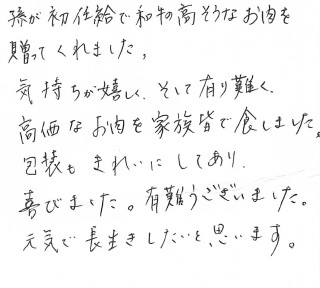 孫が初任給で和牛の高そうなお肉を
贈ってくれました。
気持ちが嬉しく、そして有り難く、
高価なお肉を家族皆で食しました。
包装もきれいにしてあり、
喜びました。有難うございました。
元気で長生きしたいと思います。